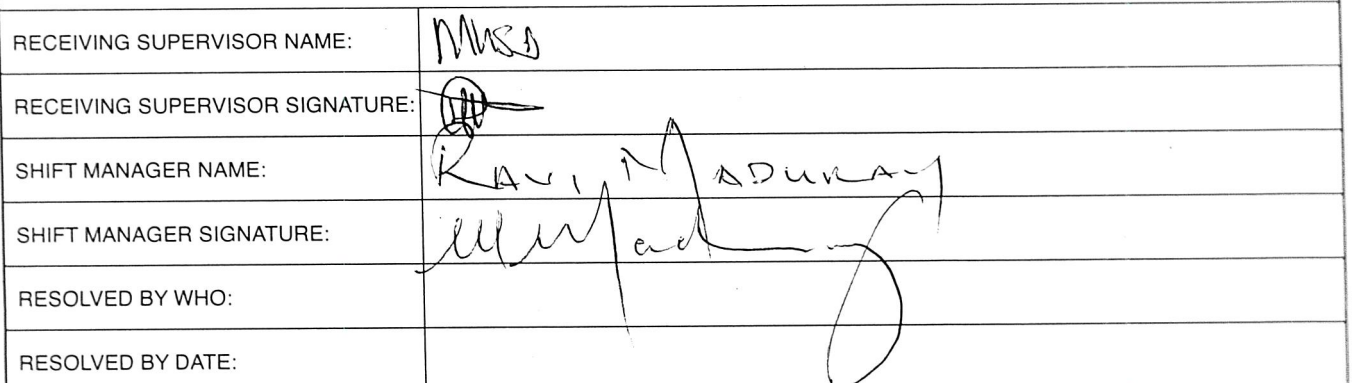 RECEIVING SUPERVISOR NAME:
RECEIVING SUPERVISOR SIGNATURE:
SHIFT MANAGER NAME: RAVI MADURAY
SHIFT MANAGER SIGNATURE:
RESOLVED BY WHO:
RESOLVED BY DATE: